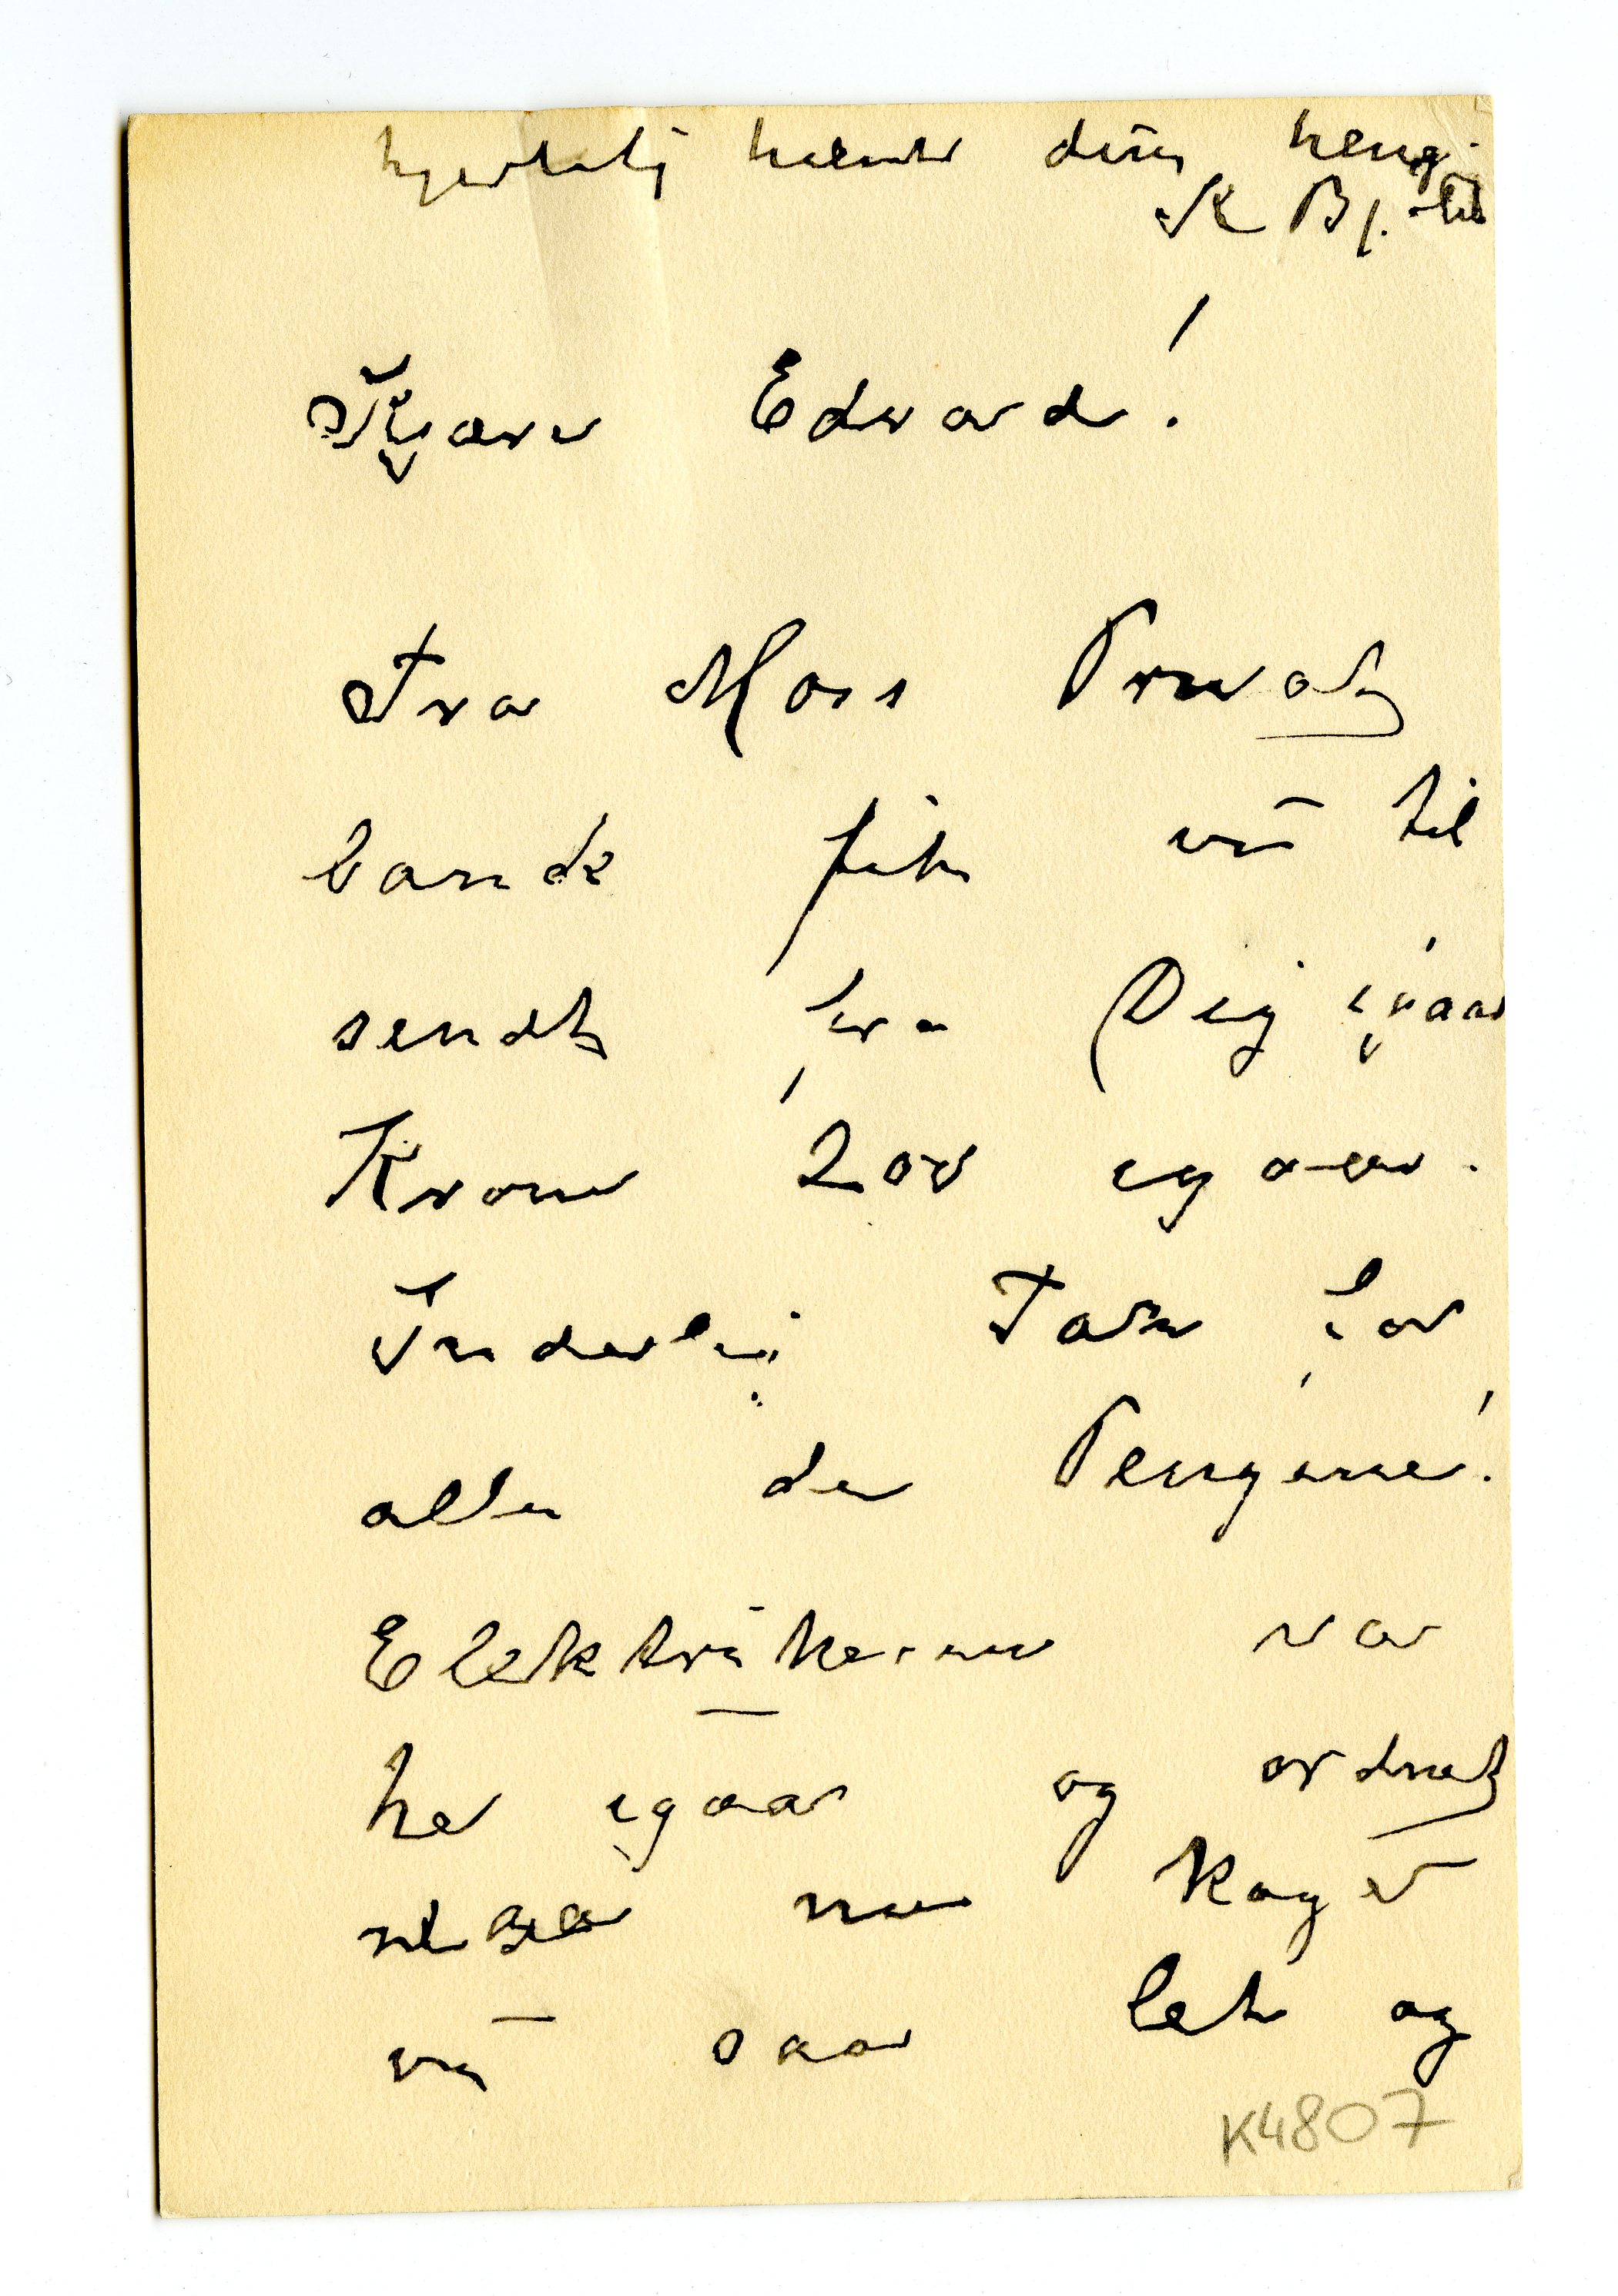 hjertelig hilsen din heng.
K Bj.
Kjære Edvard!
Fra Moss Privat
bank fik vi til
sendt fra Dig igaar
Kroner 200 igaar.
Inderlig Tak for
alle de Pengene!
Elektrikeren var
her igaar og ordnet
nu koger
vi saa let og
K4807